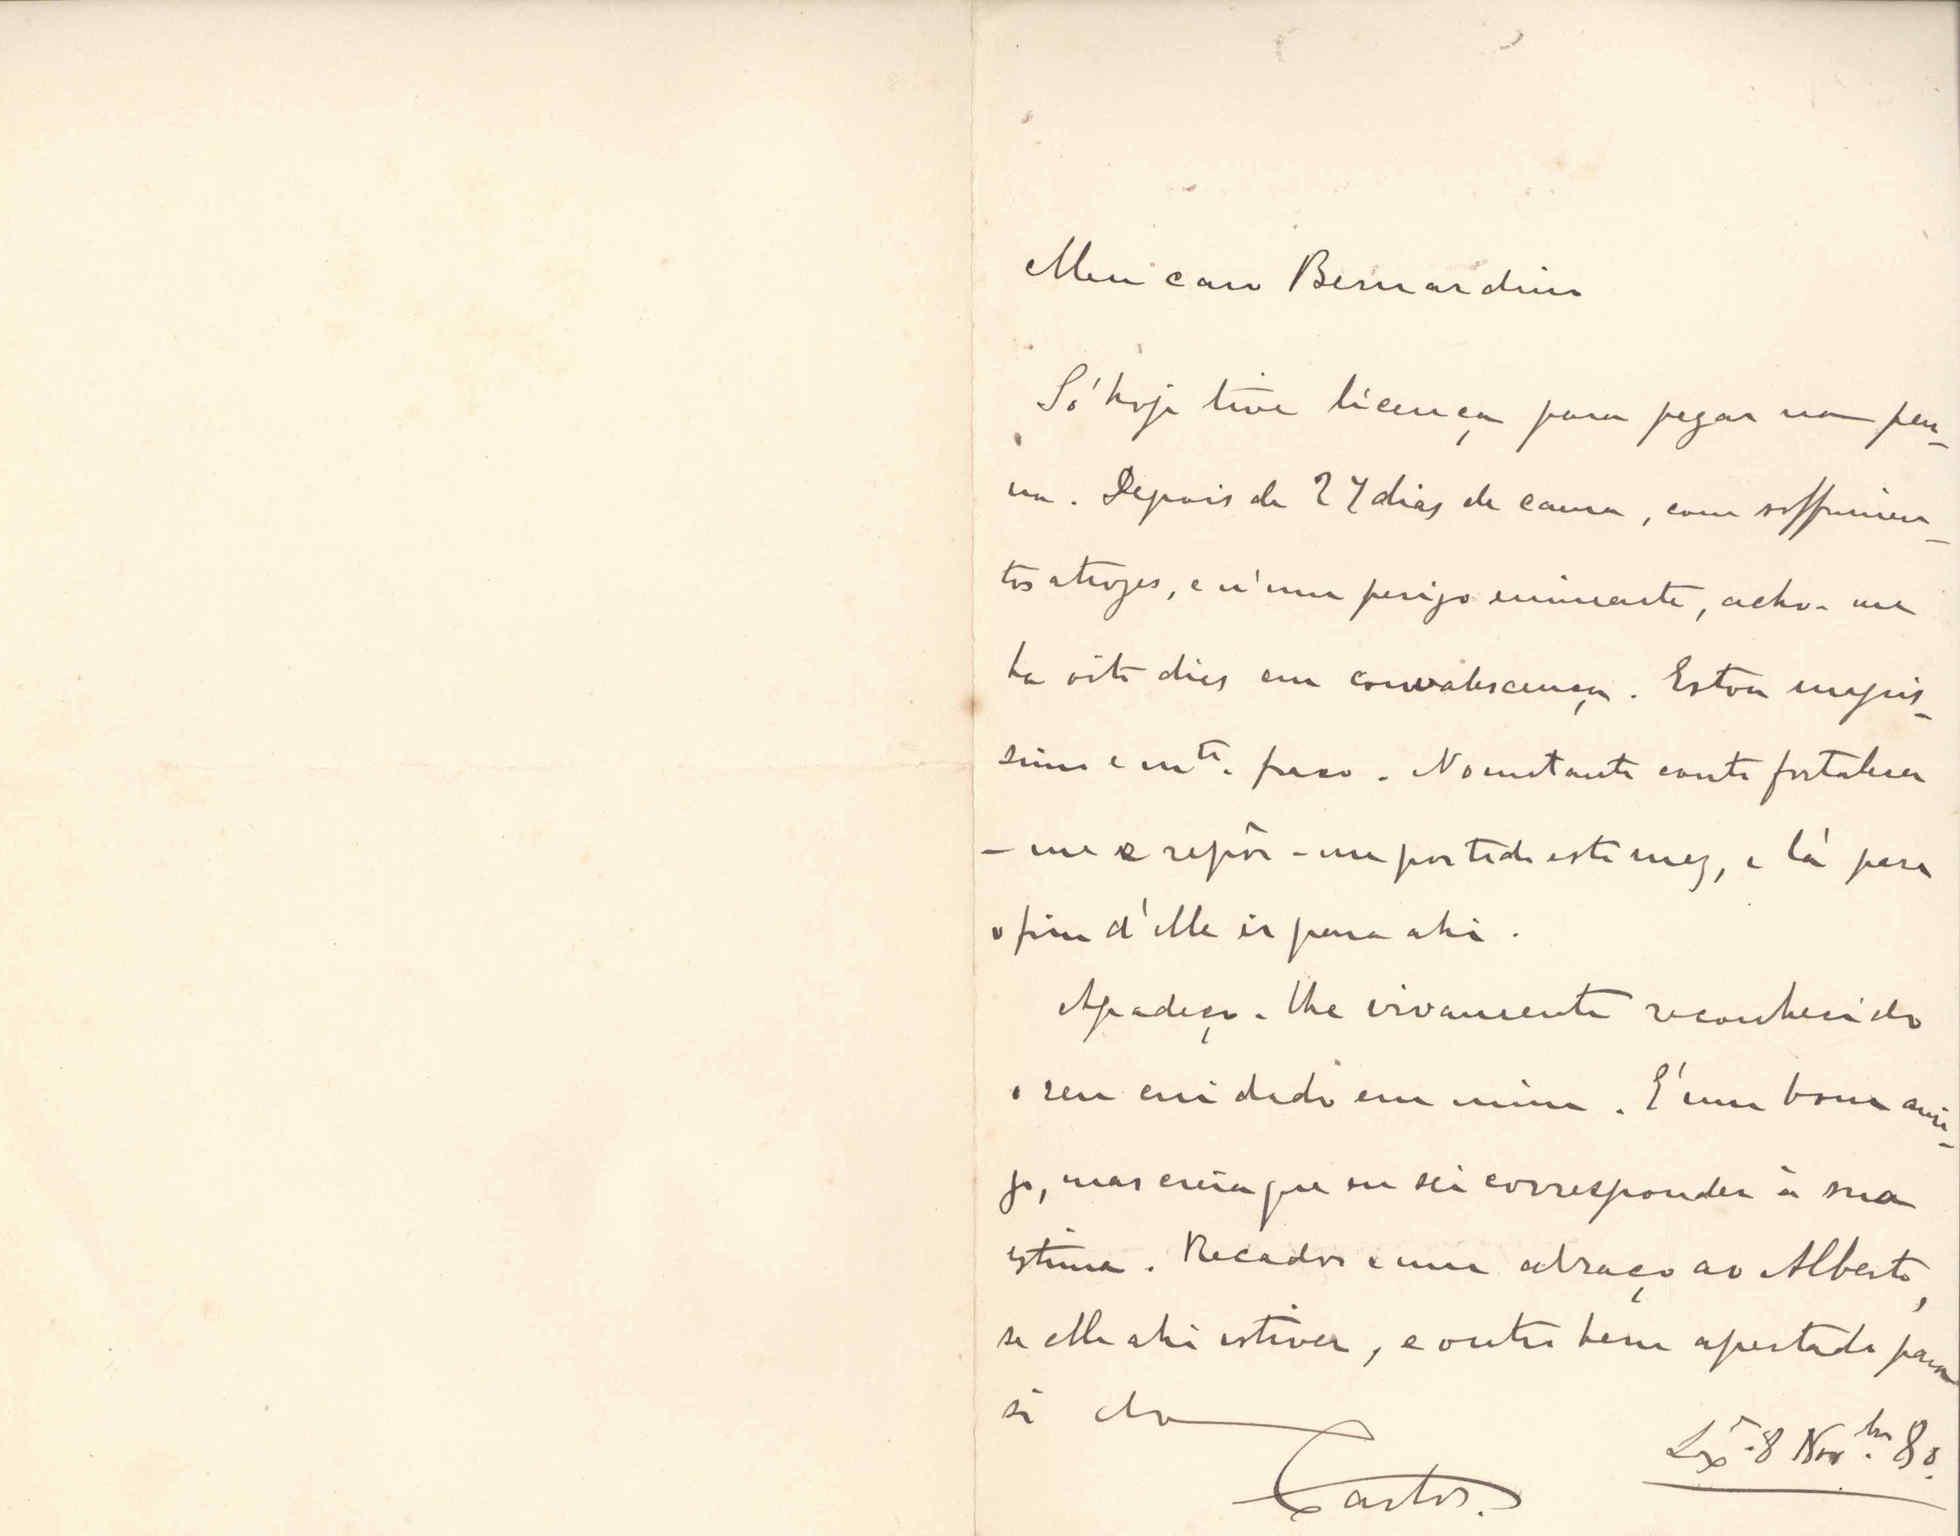 Meu caro Bernardino
Só hoje tive licença para pegar na pen-
na. Depois de 27 dias de cama, com soffrimen-
tos atrozes, e n'um perigo imminente, acho-me
ha oito dias em convalescença. Estou magris-
simo e mto. fraco. No emtanto conto fortalecer
-me e repôr-me por todo este mez, e lá para
o fim d'elle ir para ahi.
Agradeço-lhe vivamente reconhecido
o seu cuidado em mim. É um bom ami-
go, mas creia que eu sei corresponder á sua
estima. Recados e um abraço ao Alberto,
se elle ahi estiver, e outro bem apertado para
si do
Lxª 8 Novbro. 80.